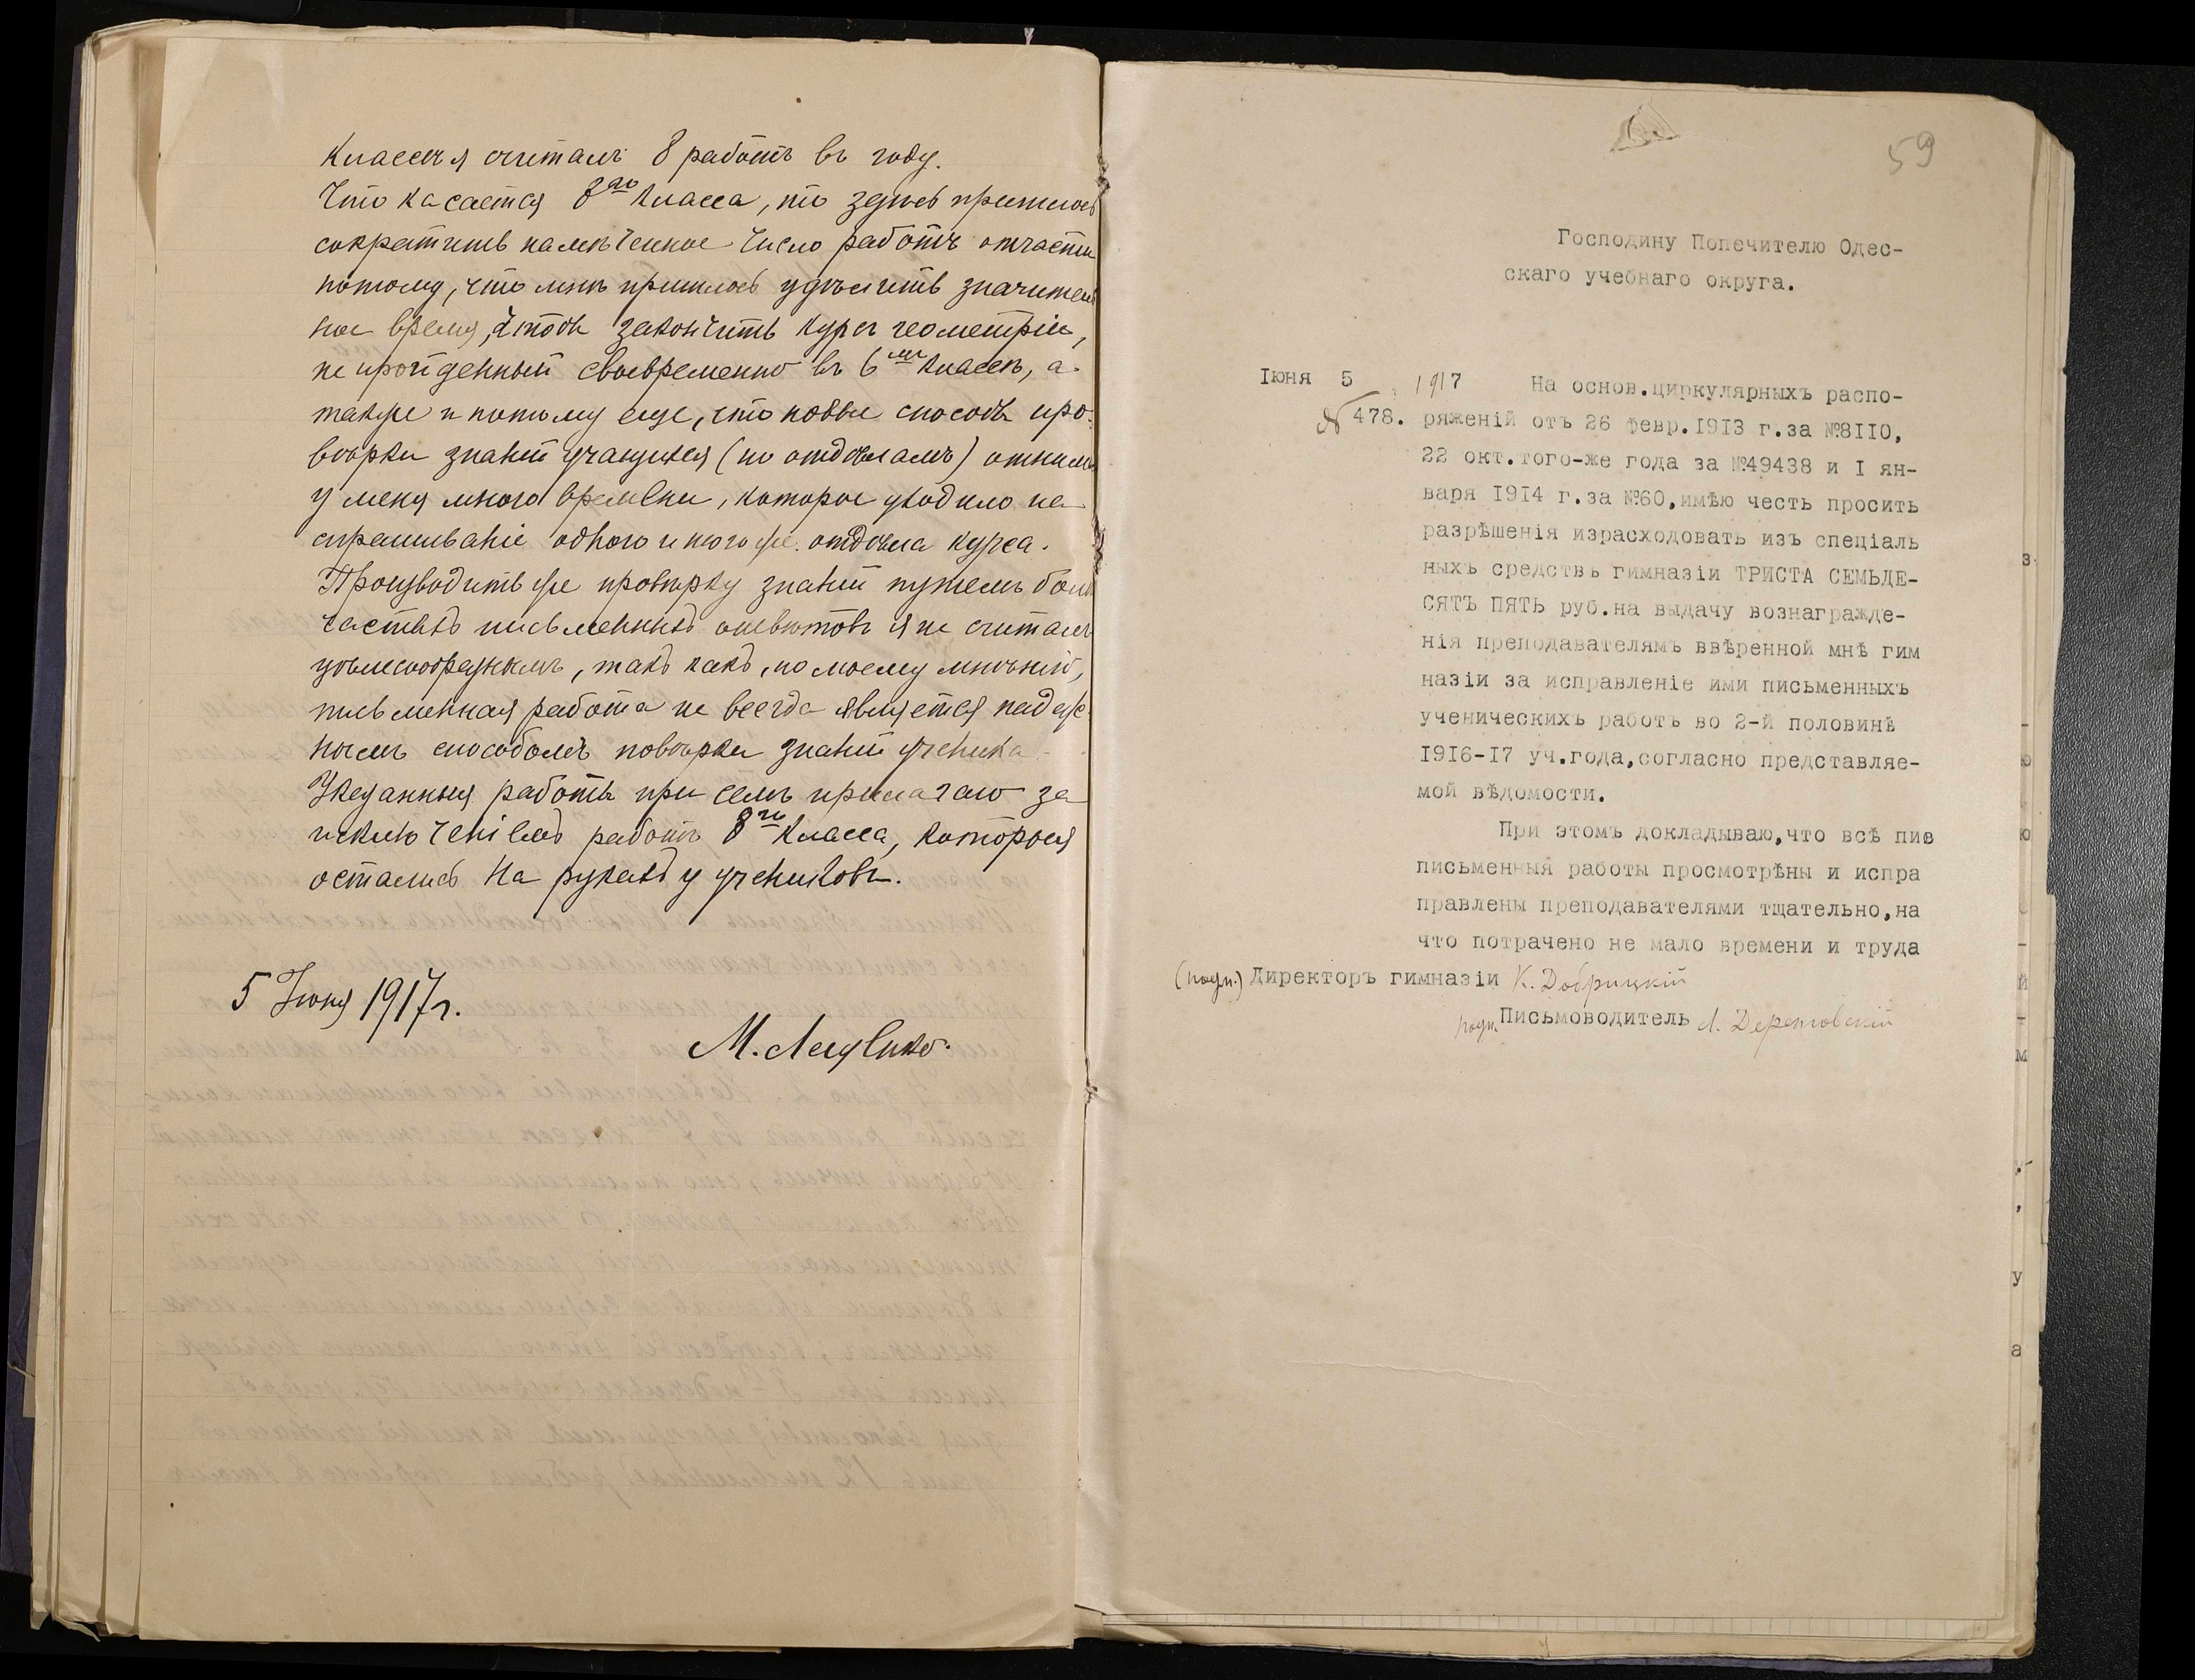 классѣ я считалъ 8 работъ въ году.
Что касается 8го класса, то здѣсь пришлось
сократить намѣченное число работъ отчасти
потому, что мнѣ пришлось удѣлить значитель
ное время, чтобы закончить курсъ геометріи,
не пройденный своевременно въ 6мъ классѣ, а
также и потому еще, что новые способы про-
вѣрки знаній учащихся (по отдѣламъ) отнимали
у меня много времени, которое уходило на
спрашиваніе одного и того же отдѣла курса.
Производить же провѣрку знаній путемъ болѣе
частыхъ письменныхъ отвѣтовъ я не считалъ
цѣлесообразнымъ, такъ какъ, по моему мнѣнію,
письменная работа не всегда является надеж-
нымъ способомъ повѣрки знаній ученика.
Указанныя работы при семъ прилагаю за
исключеніемъ работъ 8го класса, которыя
остались на рукахъ у учениковъ.
5 Іюня 1917 г.
М.
59
Господину Попечителю Одес-
скаго учебнаго округа.
Іюня 5 1917 На основ.циркулярныхъ распо-
№ 478. ряженій отъ 26 февр.1913 г.за №8110,
22 окт.того-же года за №49438 и I ян-
варя 1914 г.за №60,имѣю честь просить
разрѣшенія израсходовать изъ спеціаль
ныхъ средствъ гимназіи ТРИСТА СЕМЬДЕ-
СЯТЪ ПЯТЬ руб.на выдачу вознагражде-
нія преподавателямъ ввѣренной мнѣ гим
назіи за исправленіе ими письменныхъ
ученическихъ работъ во 2-й половинѣ
1916-17 уч.года,согласно представляе-
мой вѣдомости.
При этомъ докладываю,что всѣ пис
письменныя работы просмотрѣны и испра
правлены преподавателями тщательно,на
что потрачено не мало времени и труда
(подп.) Директоръ гимназіи К. Добрицкій
подп. Письмоводитель